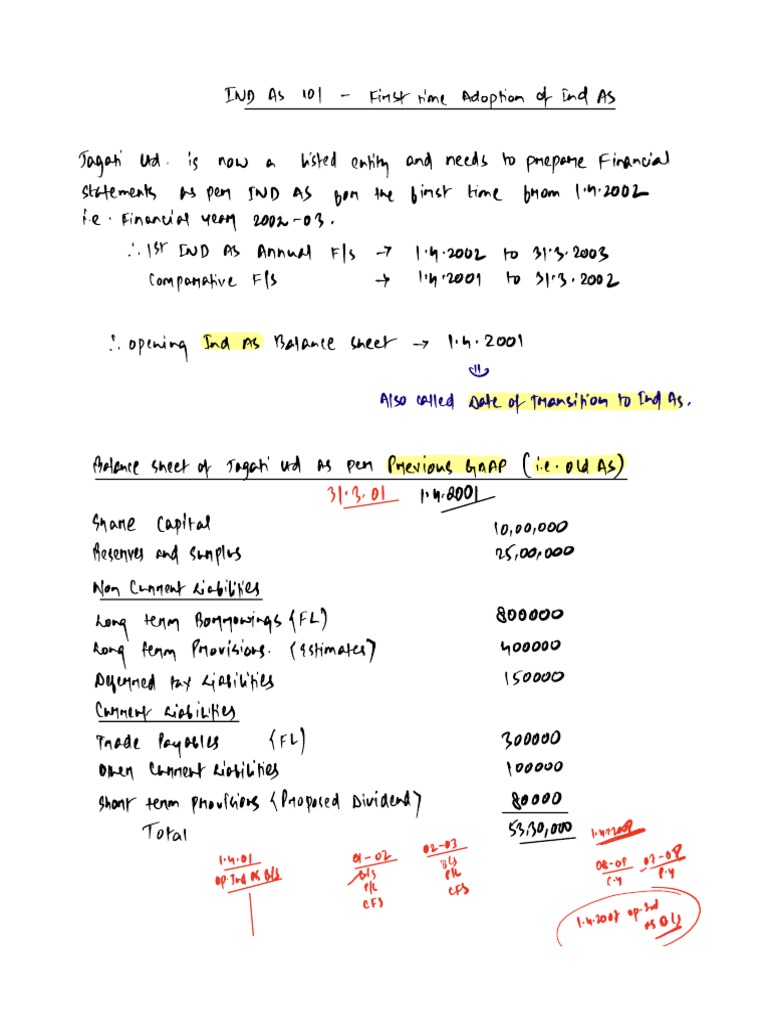 IND AS 101 - First time Adoption of Ind AS
Jagati Ltd. is now a listed entity and needs to prepare Financial
statements as per IND AS for the first time from 1.4.2002
i.e. Financial year 2002-03.
∴ 1st IND AS Annual F/s → 1.4.2002 to 31.3.2003
Comparative F/s → 1.4.2001 to 31.3.2002
∴ opening Ind AS Balance sheet → 1.4.2001
Also called Date of transition to Ind As.
Balance sheet of Jagati Ltd as per Previous GAAP (i.e. old AS)
31.3.01 1.4.2001
Share Capital 10,00,000
Reserves and surplus 25,00,000
Non Current Liabilities
Long term Borrowings (FL) 800000
Long term Provisions. (Estimates) 400000
Deferred tax Liabilities 150000
Current Liabilities
Trade Payables (FL) 300000
Other Current Liabilities 100000
Short term provisions (Proposed Dividend) 80000
Total 53,30,000
1.4.01 01-02 02-03
op. Ind AS B/s B/s B/s
P/L P/L
CFS CFS
08-09 07-08
C.Y P.Y
1.4.2007 op. Ind
as B/s